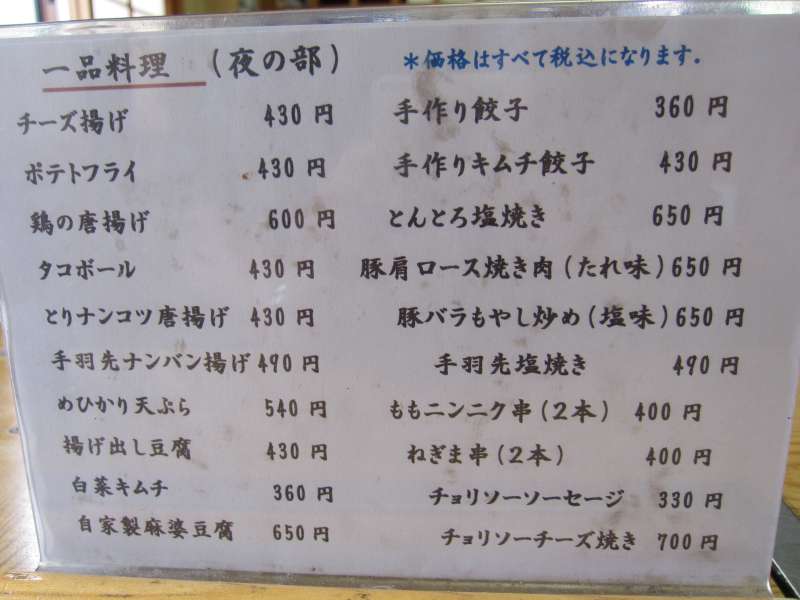 一品料理 (夜の部)
*価格はすべて税込になります.
チーズ揚げ 430 円
ポテトフライ 430 円
鶏の唐揚げ 600 円
タコボール 430 円
とりナンコツ唐揚げ 430 円
手羽先ナンバン揚げ 490 円
めひかり天ぷら 540 円
揚げ出し豆腐 430 円
白菜キムチ 360 円
自家製麻婆豆腐 650 円
手作り餃子 360 円
手作りキムチ餃子 430 円
とんとろ塩焼き 650 円
豚肩ロース焼き肉(たれ味) 650 円
豚バラもやし炒め(塩味) 650 円
手羽先塩焼き 490 円
ももニンニク串(2本) 400 円
ねぎま串(2本) 400 円
チョリソーソーセージ 330 円
チョリソーチーズ焼き 700 円